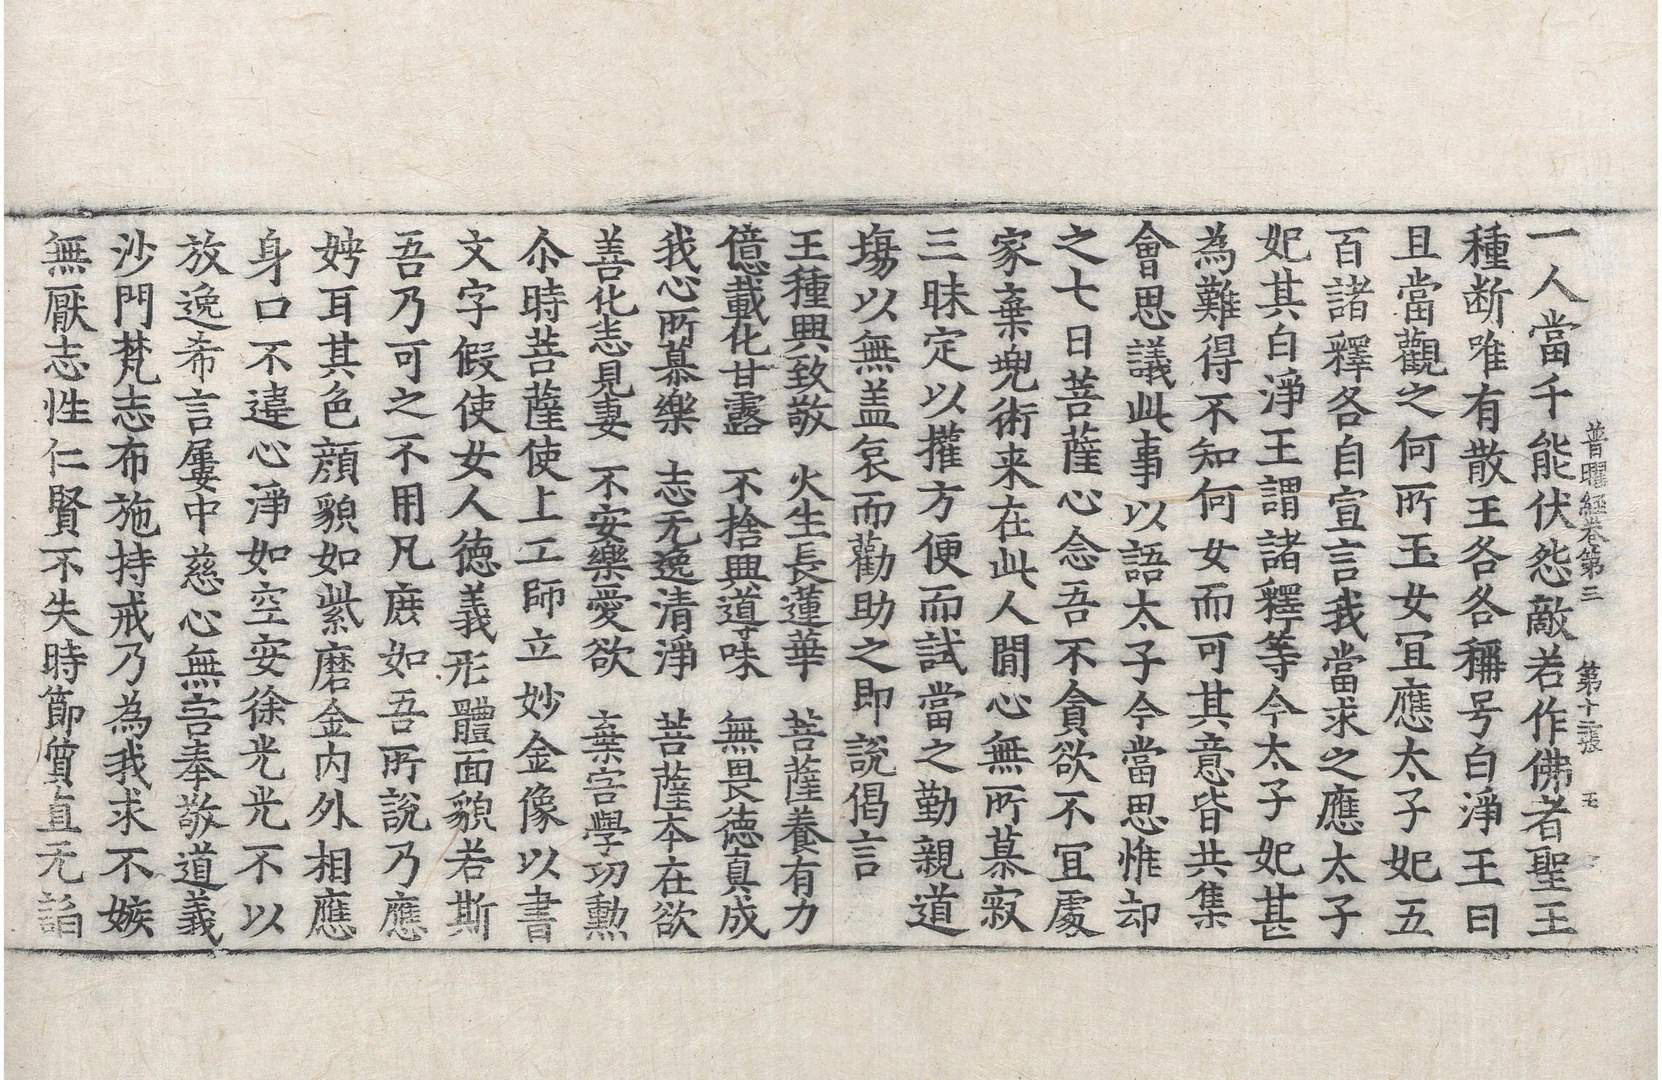 普曜經卷第三 第十二張 玉
一人當千能伏怨敵若作佛者聖王
種断唯有散王各各稱号白淨王曰
且當觀之何所玉女冝應太子妃五
百諸釋各自宣言我當求之應太子
妃其白淨王謂諸釋等今太子妃甚
為難得不知何女而可其意皆共集
會思議此事以語太子今當思惟却
之七日菩薩心念吾不貪欲不冝處
家棄兜術来在此人間心無所慕寂
三昧定以攉方便而試當之勤親道
塲以無盖哀而勸助之即說偈言
王種興致敬 火生長蓮華 菩薩養有力
億載化甘露 不捨興道味 無畏德真成
我心所慕樂 志无逸清淨 菩薩本在欲
善化恚見妻 不安樂愛欲 棄害學功勲
尒時菩薩使上工師立妙金像以書
文字假使女人德義形體面貌若斯
吾乃可之不用凡庶如吾所說乃應
娉耳其色顔貌如紫磨金内外相應
身口不違心淨如空安徐光光不以
放逸希言屢中慈心無害奉敬道義
沙門梵志布施持戒乃為我求不嫉
無厭志性仁賢不失時節質直无諂